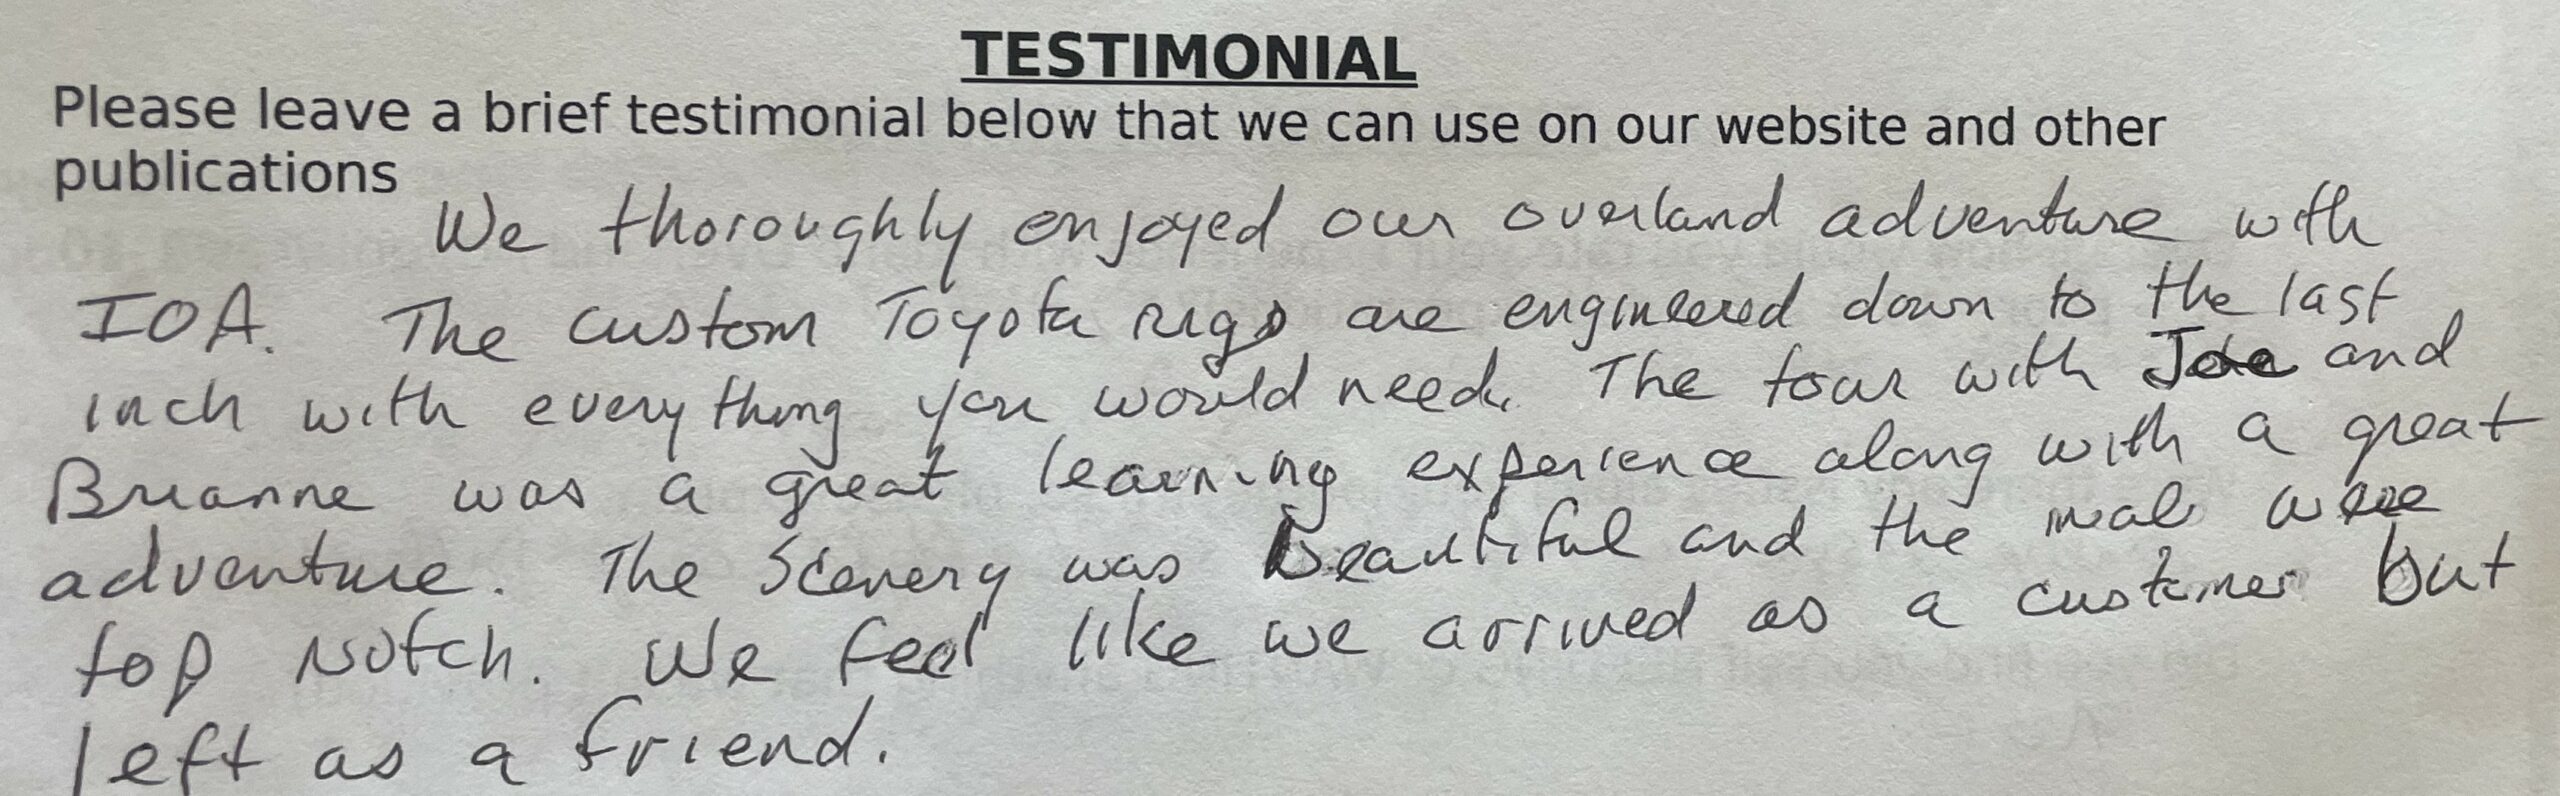 TESTIMONIAL
Please leave a brief testimonial below that we can use on our website and other
publications
We thoroughly enjoyed our overland adventure with
IOA. The custom Toyota rigs are engineered down to the last
inch with everything you would need. The tour with Joe and
Brianne was a great learning experience along with a great
adventure. The scenery was beautiful and the meals were
top notch. We feel like we arrived as a customer but
left as a friend.